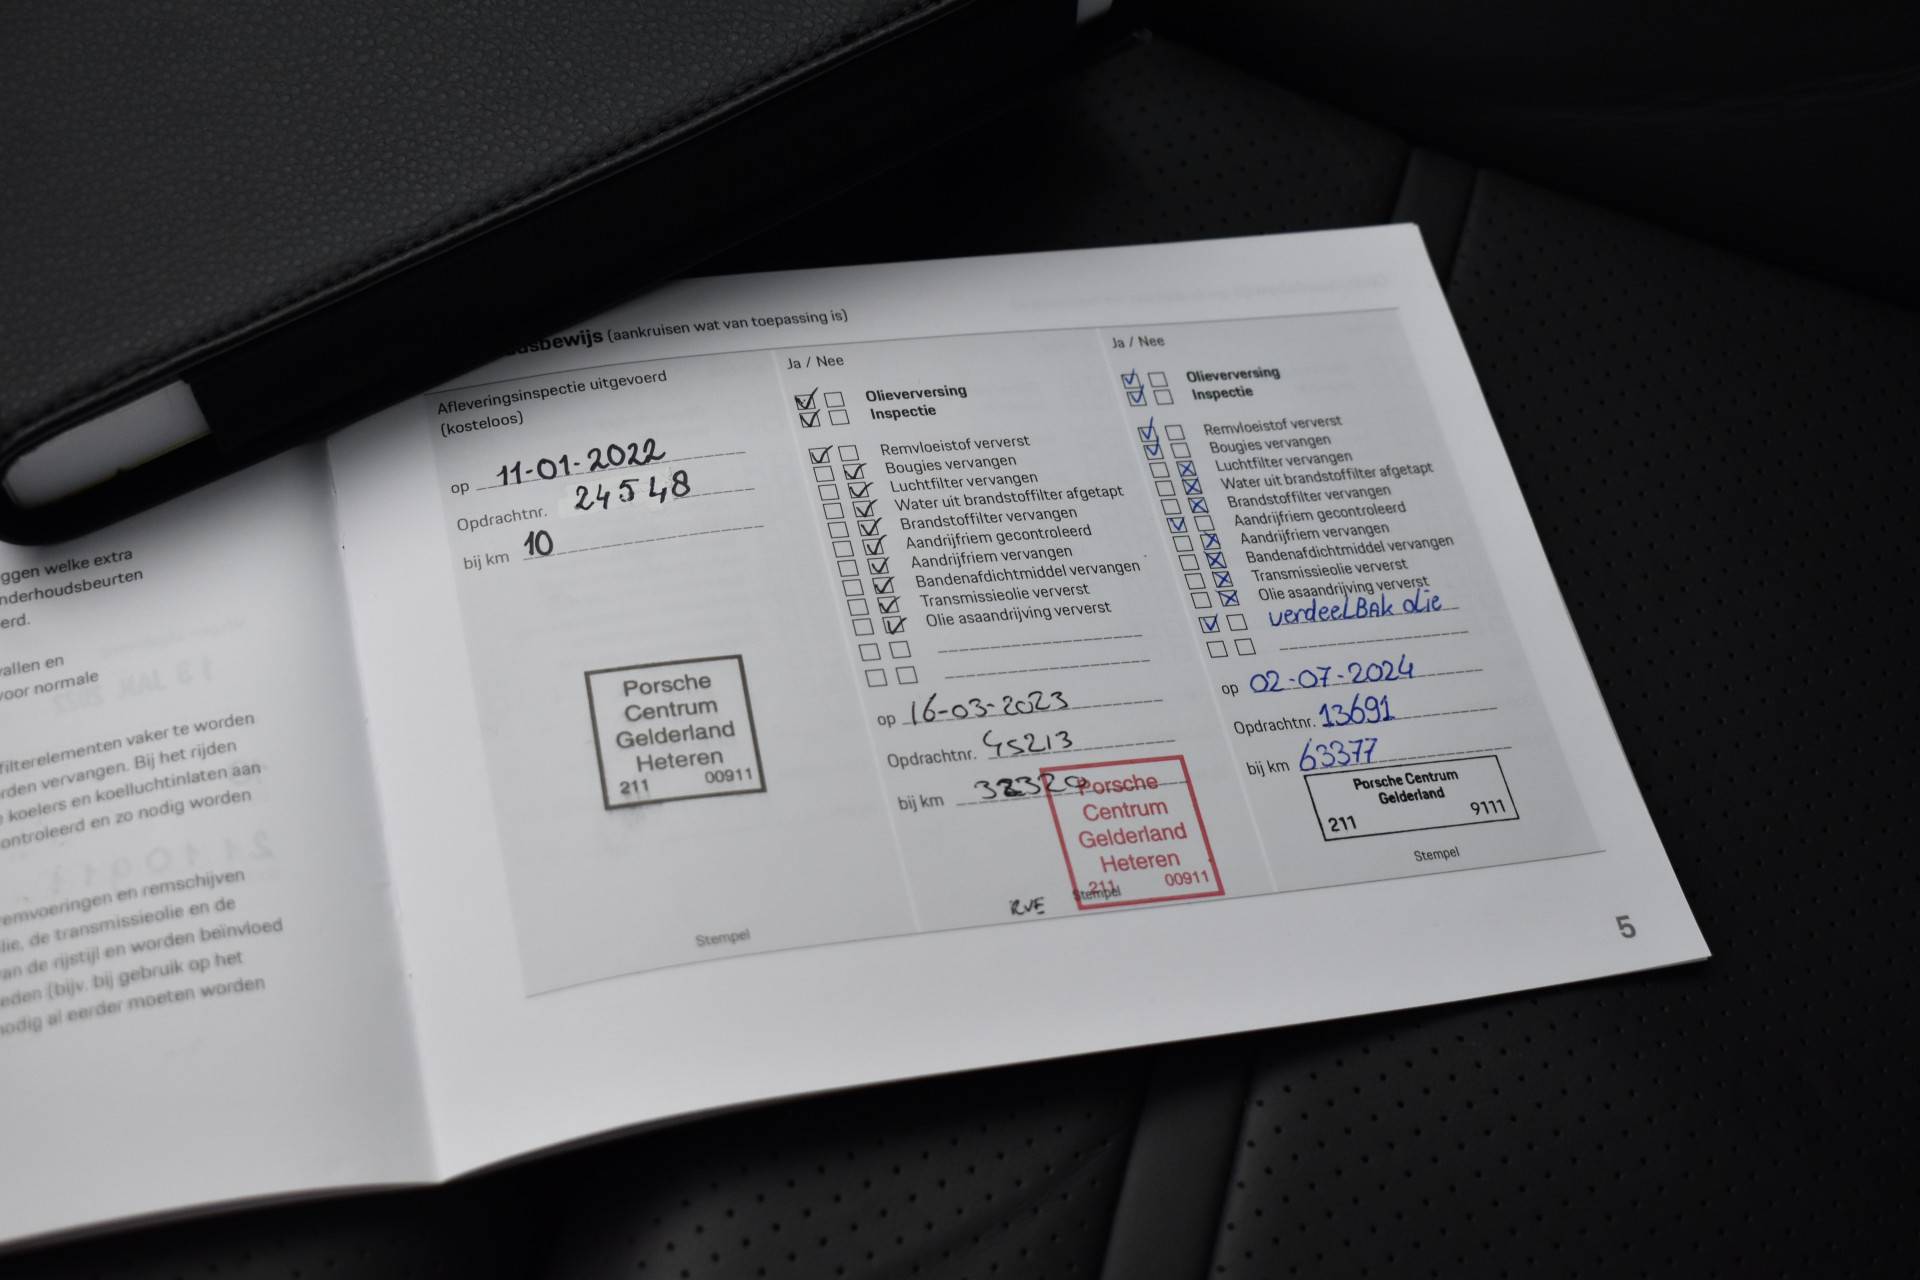 ggen welke extra
nderhoudsbeurten
erd.
vallen en
voor normale
filterelementen vaker te worden
rden vervangen. Bij het rijden
koelers en koelluchtinlaten aan
ontroleerd en zo nodig worden
emvoeringen en remschijven
lie, de transmissieolie en de
an de rijstijl en worden beïnvloed
eden (bijv. bij gebruik op het
nodig al eerder moeten worden
dsbewijs (aankruisen wat van toepassing is)
Afleveringsinspectie uitgevoerd
(kosteloos)
op 11-01-2022
Opdrachtnr. 24548
bij km 10
Porsche
Centrum
Gelderland
Heteren
211 00911
Stempel
Ja / Nee
Olieverversing
Inspectie
Remvloeistof ververst
Bougies vervangen
Luchtfilter vervangen
Water uit brandstoffilter afgetapt
Brandstoffilter vervangen
Aandrijfriem gecontroleerd
Aandrijfriem vervangen
Bandenafdichtmiddel vervangen
Transmissieolie ververst
Olie asaandrijving ververst
op 16-03-2023
Opdrachtnr. 45213
bij km
Porsche
Centrum
Gelderland
Heteren
211 00911
RVE Stempel
Ja / Nee
Olieverversing
Inspectie
Remvloeistof ververst
Bougies vervangen
Luchtfilter vervangen
Water uit brandstoffilter afgetapt
Brandstoffilter vervangen
Aandrijfriem gecontroleerd
Aandrijfriem vervangen
Bandenafdichtmiddel vervangen
Transmissieolie ververst
Olie asaandrijving ververst
verdeelBAk olie
op 02-07-2024
Opdrachtnr. 13691
bij km 63377
Porsche Centrum
Gelderland
211 9111
Stempel
5